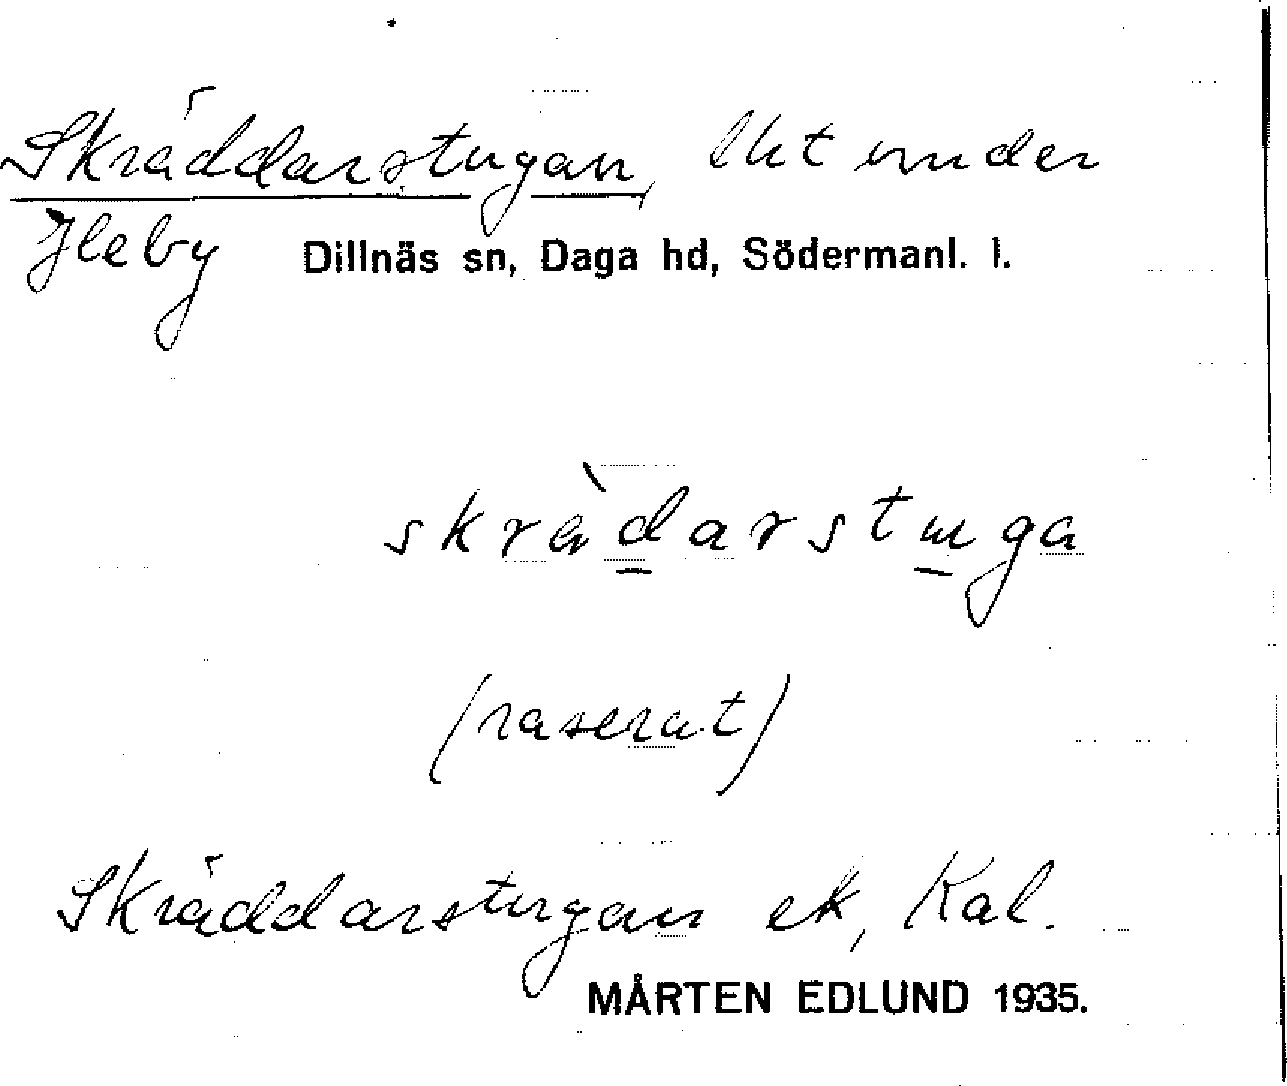 Skräddarstugan, lht under
Jleby Dillnäs sn, Daga hd, Södermanl. l.
skrädarstuga
(raserat)
Skräddarstugan ek, Kal.
MÅRTEN EDLUND 1935.